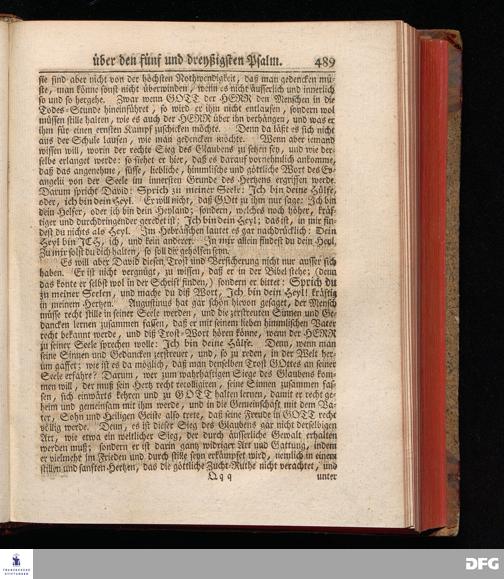 über den fünf und dreyßigsten Psalm. 489
sie sind aber nicht von der höchsten Nothwendigkeit, daß man gedencken mü-
ste, man könne sonst nicht überwinden, wenn es nicht äusserlich und innerlich
so und so hergehe. Zwar wenn GOTT der HERR den Menschen in die
Todes-Stunde hineinführet, so wird er ihm nicht entlaufen, sondern wol
müssen stille halten, wie es auch der HERR über ihn verhängen, und was er
ihm für einen ernsten Kampf zuschicken möchte. Denn da läst es sich nicht
aus der Schule laufen, wie man gedencken möchte. Wenn aber iemand
wissen will, worin der rechte Sieg des Glaubens zu setzen sey, und wie der-
selbe erlanget werde: so siehet er hier, daß es darauf vornehmlich ankomme,
daß das angenehme, süsse, liebliche, himmlische und göttliche Wort des Ev-
angelii von der Seele im innersten Grunde des Hertzens ergriffen werde.
Darum spricht David: Sprich zu meiner Seele: Ich bin deine Hülfe,
oder, ich bin dein Heyl. Er will nicht, daß GOtt zu ihm nur sage: Ich bin
dein Helfer, oder ich bin dein Heyland; sondern, welches noch höher, kräf-
tiger und durchdringender geredet ist: Ich bin dein Heyl; das ist, in mir fin-
dest du nichts als Heyl. Im Hebräischen lautet es gar nachdrücklich: Dein
Heyl bin ICH, ich, und kein anderer. In mir allein findest du dein Heyl.
Zu mir solst du dich halten, so soll dir geholfen seyn.
Es will aber David diesen Trost und Versicherung nicht nur ausser sich
haben. Er ist nicht vergnügt, zu wissen, daß er in der Bibel stehe; (denn
das konte er selbst wol in der Schrift finden,) sondern er bittet: Sprich du
zu meiner Seelen, und mache du diß Wort, Ich bin dein Heyl! kräftig
in meinem Hertzen. Augustinus hat gar schön hievon gesaget, der Mensch
müsse recht stille in seiner Seele werden, und die zerstreueten Sinnen und Ge-
dancken lernen zusammen fassen, daß er mit seinem lieben himmlischen Vater
recht bekannt werde, und diß Trost-Wort hören könne, wenn der HERR
zu seiner Seele sprechen wolle: Ich bin deine Hülfe. Denn, wenn man
seine Sinnen und Gedancken zerstreuet, und, so zu reden, in der Welt her-
um gaffet; wie ist es da möglich, daß man denselben Trost GOttes an seiner
Seele erfahre? Darum, wer zum wahrhaftigen Siege des Glaubens kom-
men will, der muß sein Hertz recht recolligiren, seine Sinnen zusammen fas-
sen, sich einwärts kehren und zu GOTT halten lernen, damit er recht ge-
heim und gemeinsam mit ihm werde, und in die Gemeinschaft mit dem Va-
ter, Sohn und Heiligen Geiste also trete, daß seine Freude in GOTT recht
völlig werde. Denn, es ist dieser Sieg des Glaubens gar nicht derselbigen
Art, wie etwa ein weltlicher Sieg, der durch äusserliche Gewalt erhalten
werden muß; sondern er ist darin gantz widriger Art und Gattung, indem
er vielmehr im Frieden und durch stille seyn erkämpfet wird, nemlich in einem
stillen und sanften Hertzen, das die göttliche Zucht-Ruthe nicht verachtet, und
Q q q unter
FRANCKESCHE
STIFTUNGEN
DFG